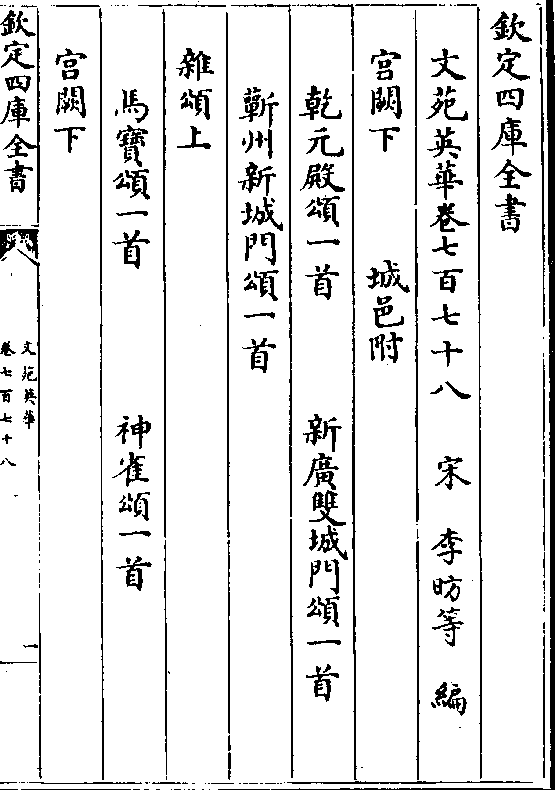 欽定四庫全書
文苑英華卷七百七十八 宋 李昉等 編
宫闕下 城邑附
乾元殿頌一首 新廣雙城門頌一首
蘄州新城門頌一首
雜頌上
馬寶頌一首 神雀頌一首
宫闕下
欽定四庫全書
文苑英華
卷七百七十八
一